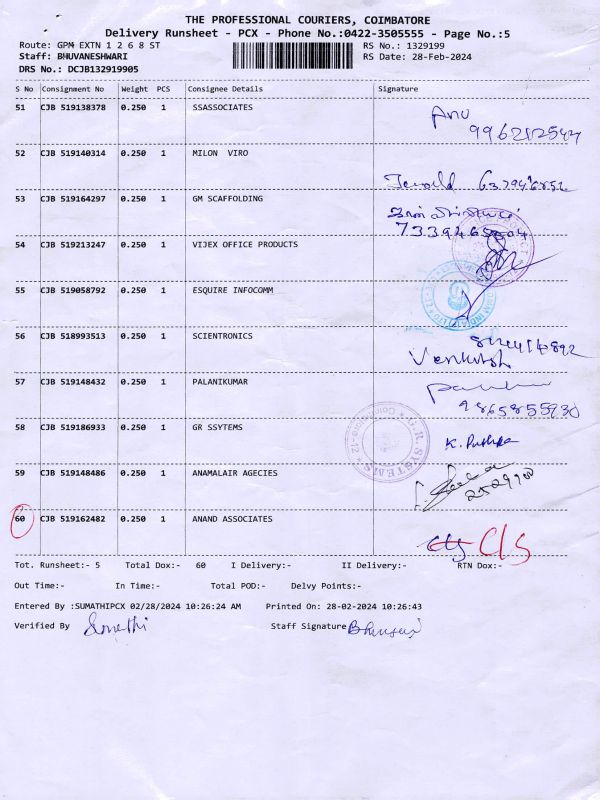 THE PROFESSIONAL COURIERS, COIMBATORE
Delivery Runsheet - PCX - Phone No.:0422-3505555 - Page No.:5
Route: GPM EXTN 1 2 6 8 ST RS No.: 1329199
Staff: BHUVANESHWARI RS Date: 28-Feb-2024
DRS No.: DCJB132919905
S No Consignment No Weight PCS Consignee Details Signature
51 CJB 519138378 0.250 1 SSASSOCIATES Anu
9962125427
52 CJB 519140314 0.250 1 MILON VIRO
53 CJB 519164297 0.250 1 GM SCAFFOLDING
54 CJB 519213247 0.250 1 VIJEX OFFICE PRODUCTS
55 CJB 519058792 0.250 1 ESQUIRE INFOCOMM
56 CJB 518993513 0.250 1 SCIENTRONICS
Venkatesh
57 CJB 519148432 0.250 1 PALANIKUMAR
9865855930
58 CJB 519186933 0.250 1 GR SSYTEMS G.R. SYSTEMS Coimbatore-12 K. Pushpa
59 CJB 519148486 0.250 1 ANAMALAIR AGECIES
2529700
60 CJB 519162482 0.250 1 ANAND ASSOCIATES C/S
Tot. Runsheet:- 5 Total Dox:- 60 I Delivery:- II Delivery:- RTN Dox:-
Out Time:- In Time:- Total POD:- Delvy Points:-
Entered By :SUMATHIPCX 02/28/2024 10:26:24 AM Printed On: 28-02-2024 10:26:43
Verified By Sumathi Staff Signature